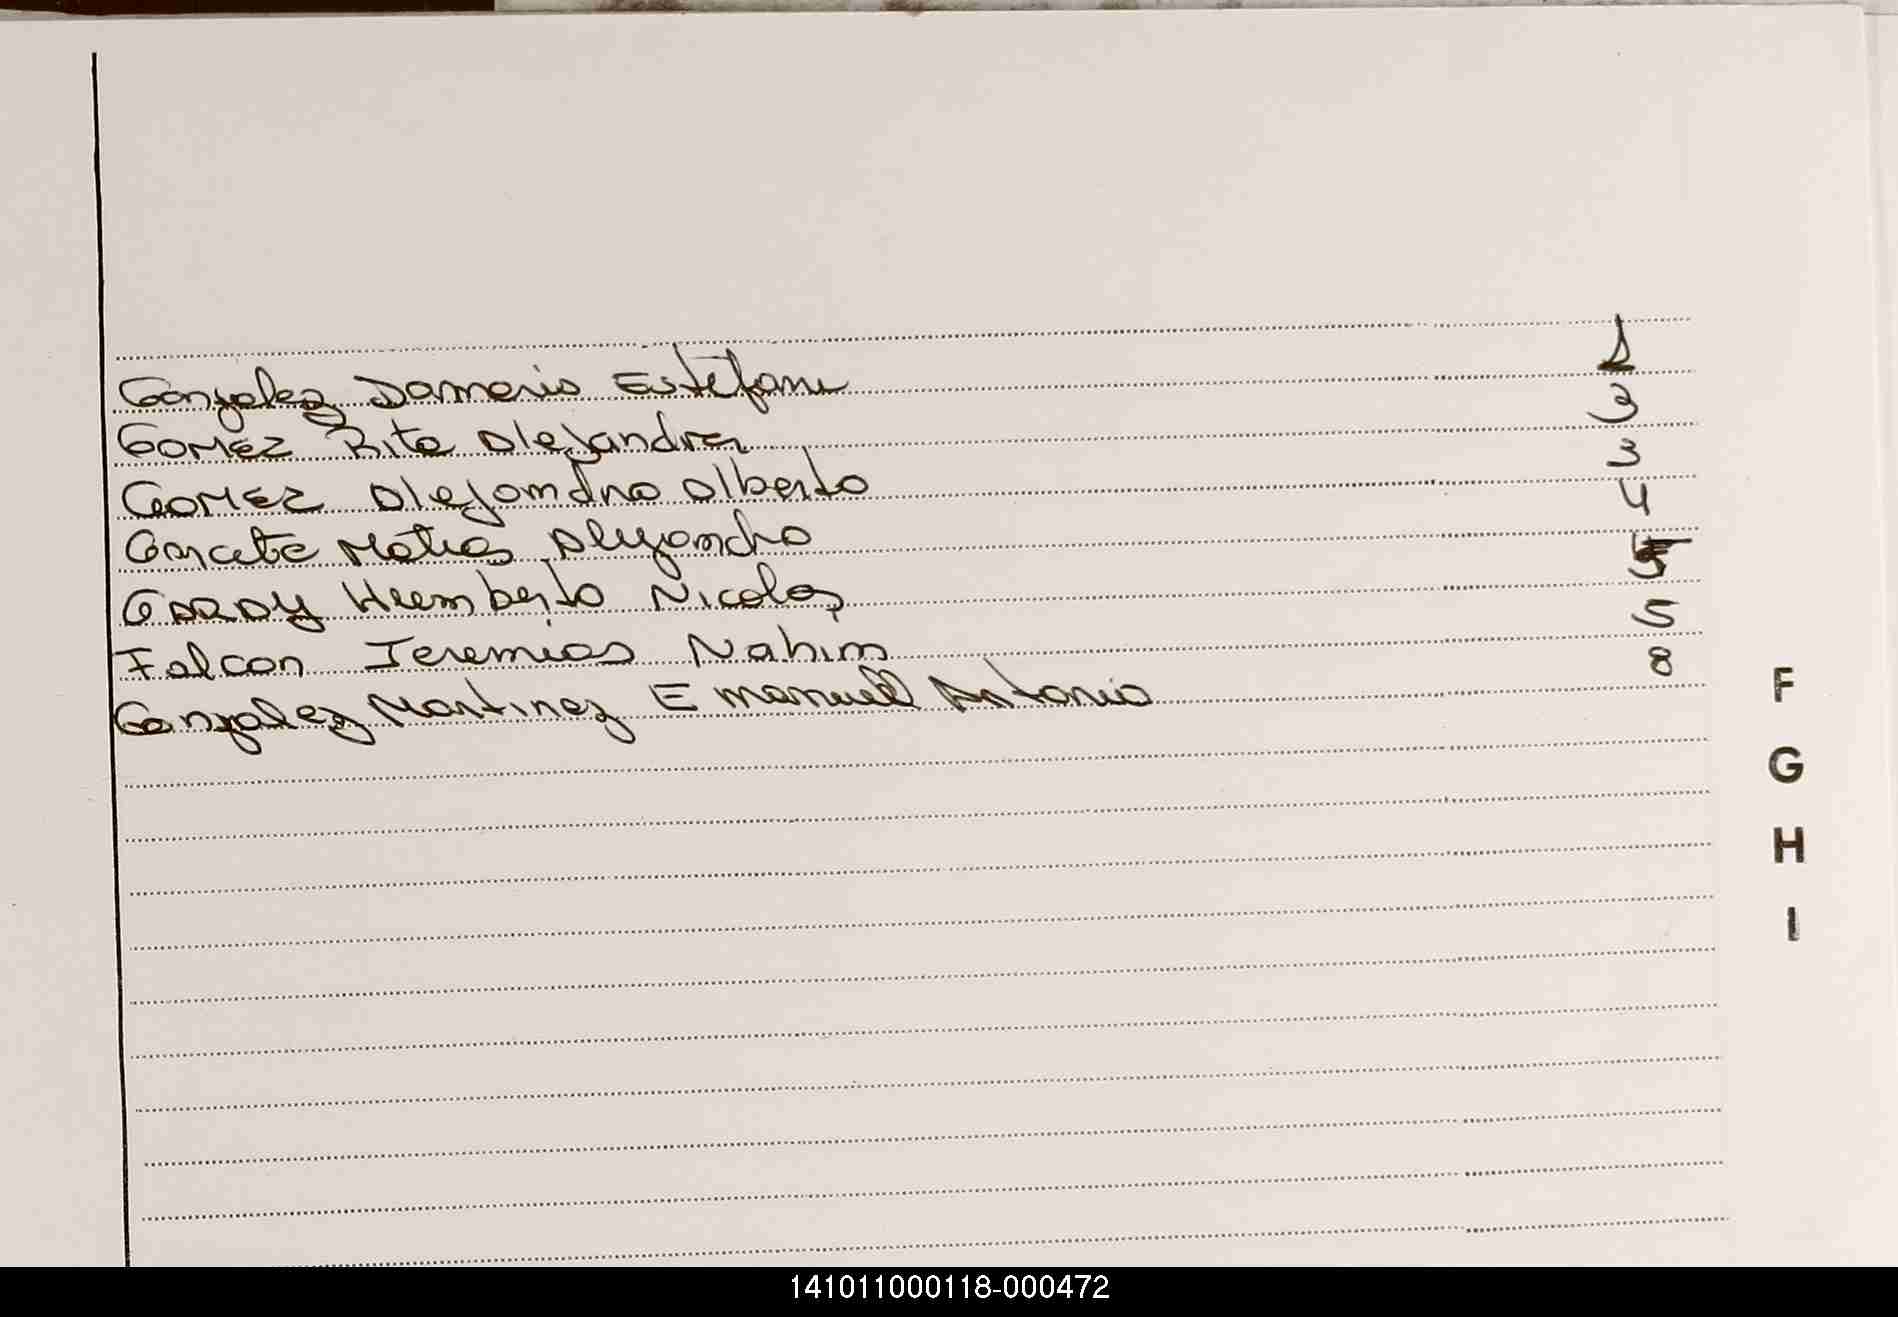 Gonzalez Dameris Estefani 1
GOMEZ Rita Alejandra 3
GOMEZ Alejandro Alberto 3
Matias Alejandro 4
GARAY Humberto Nicolas 5
Falcon Jeremias Nahim 5
Gonzalez Martinez Emanuell Antonio 8
F
G
H
I
141011000118-000472